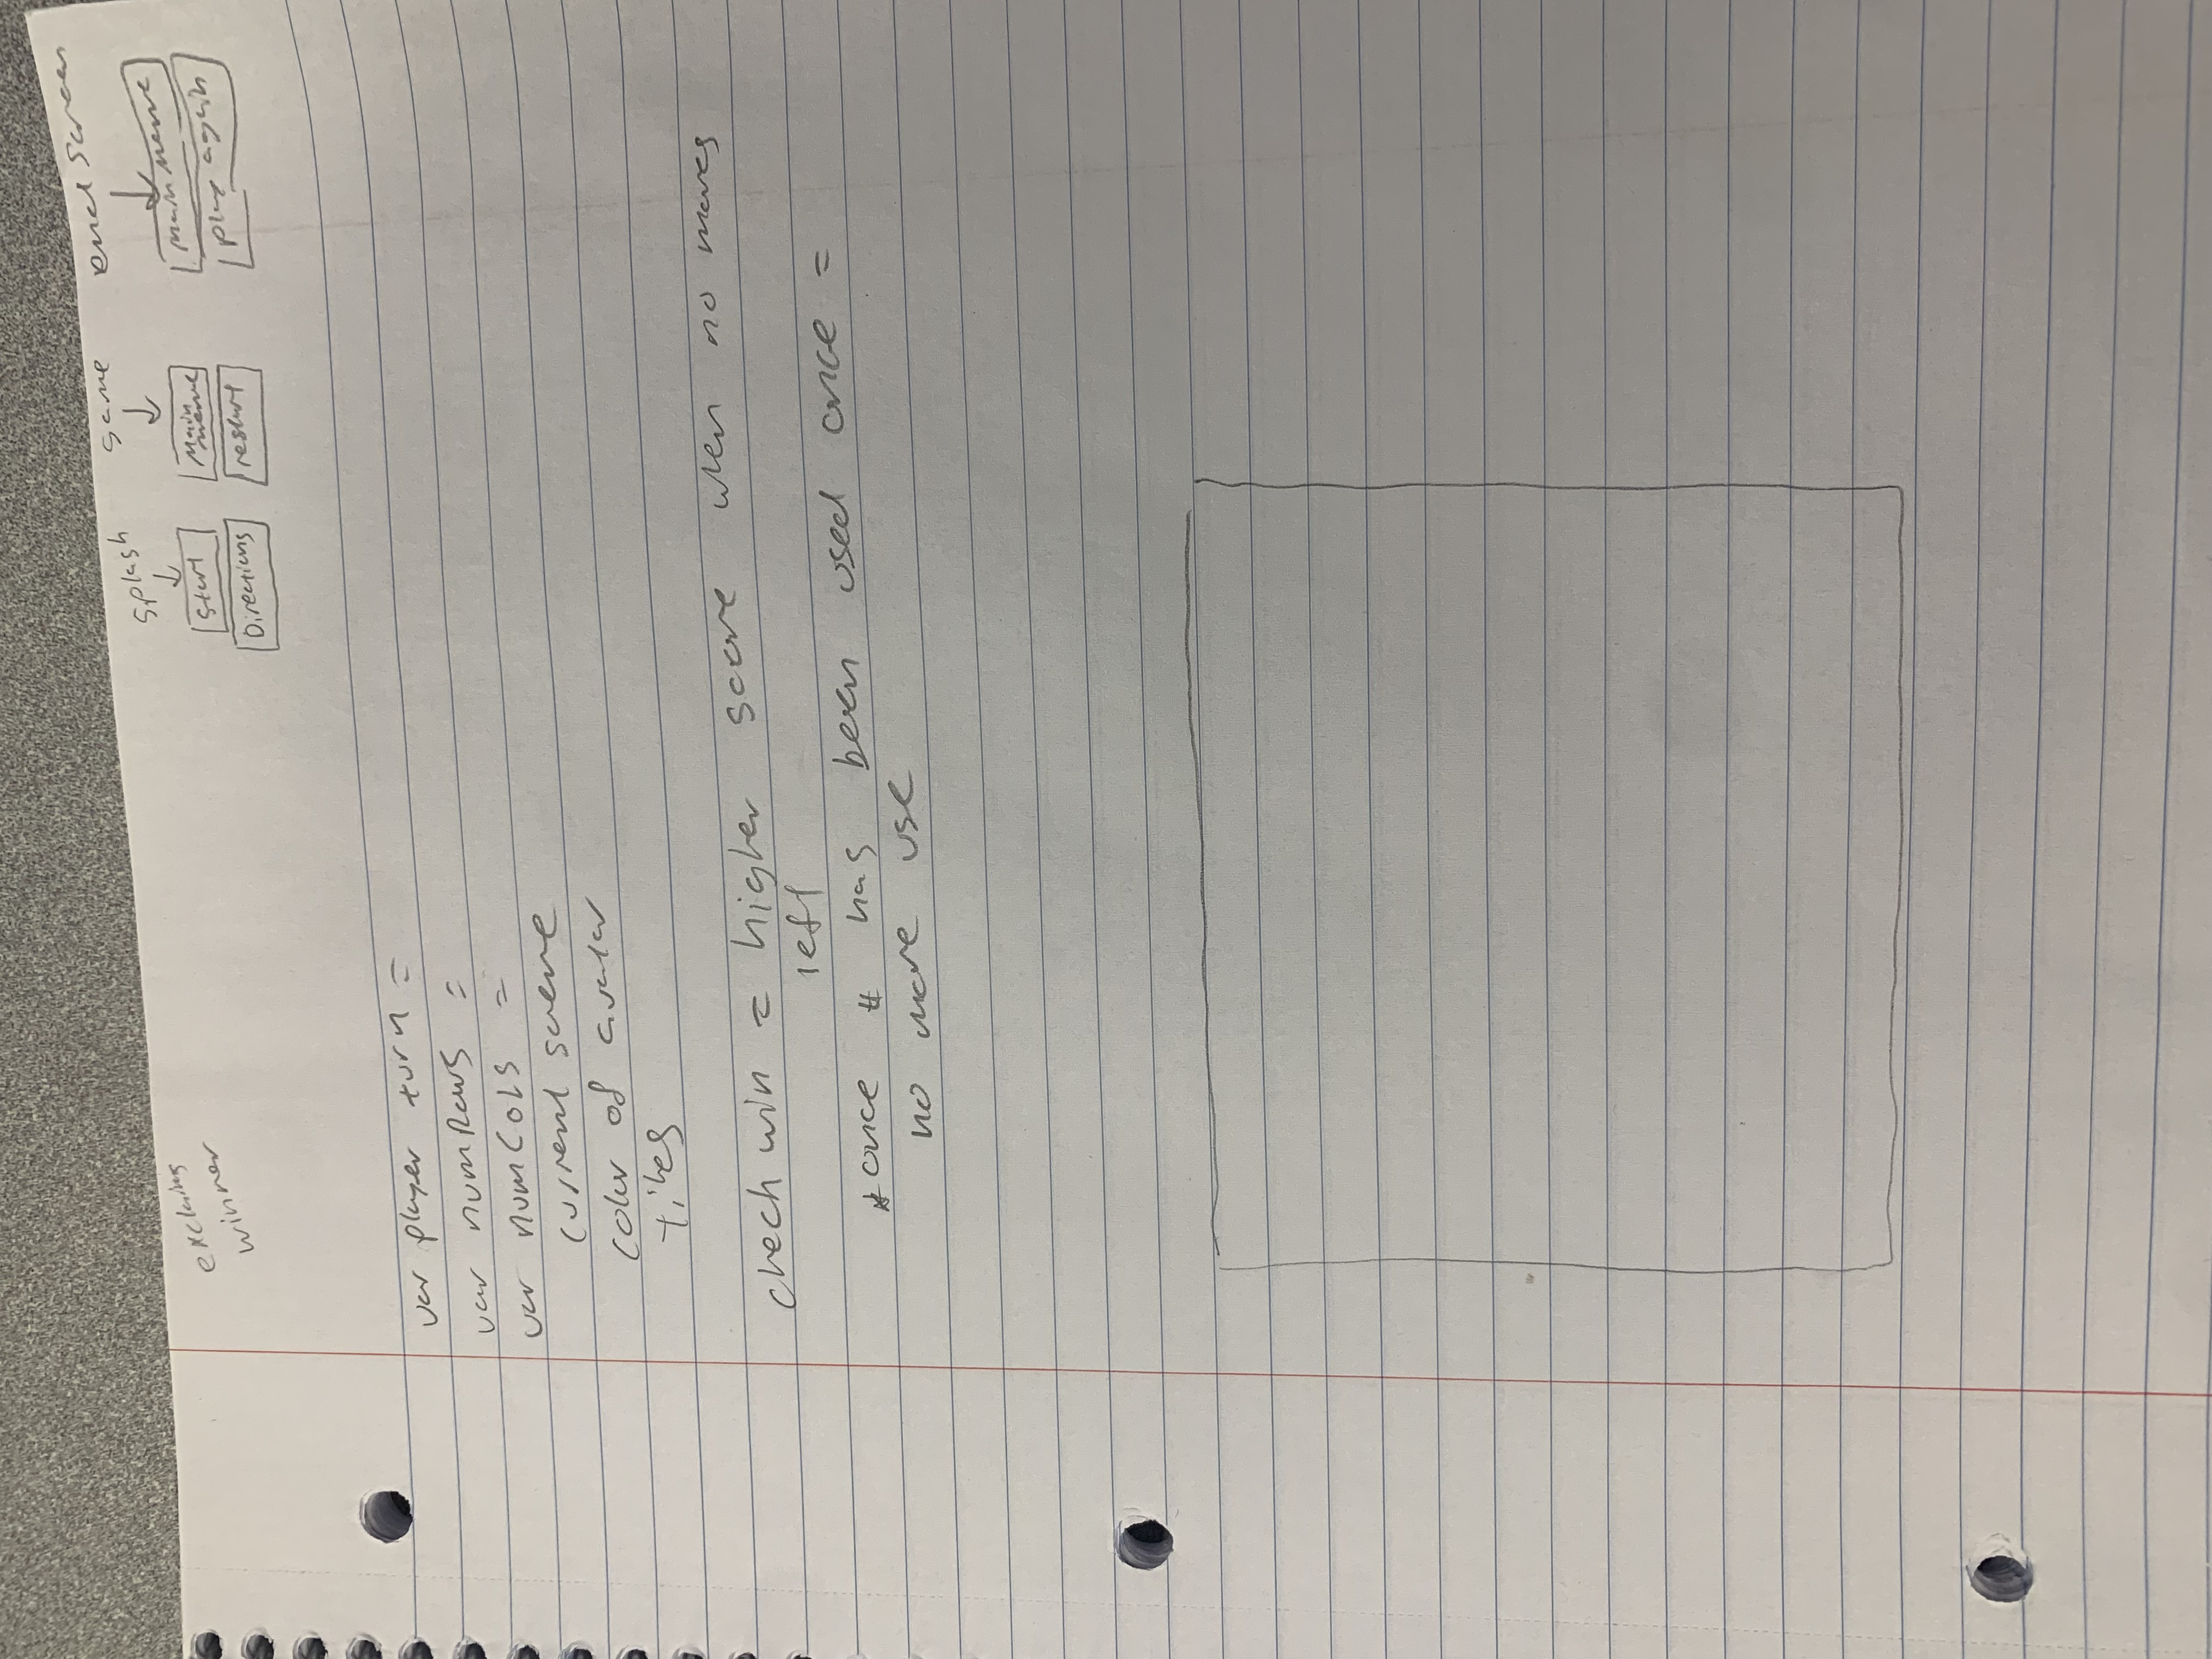 exclaims
winner
splash
start
Directions
game
main menu
restart
end screen
main menu
play again
var player turn =
var numRows =
var numCols =
current scene
color of avatar
tiles
check win = higher score when no moves
left
*once # has been used once =
no more use